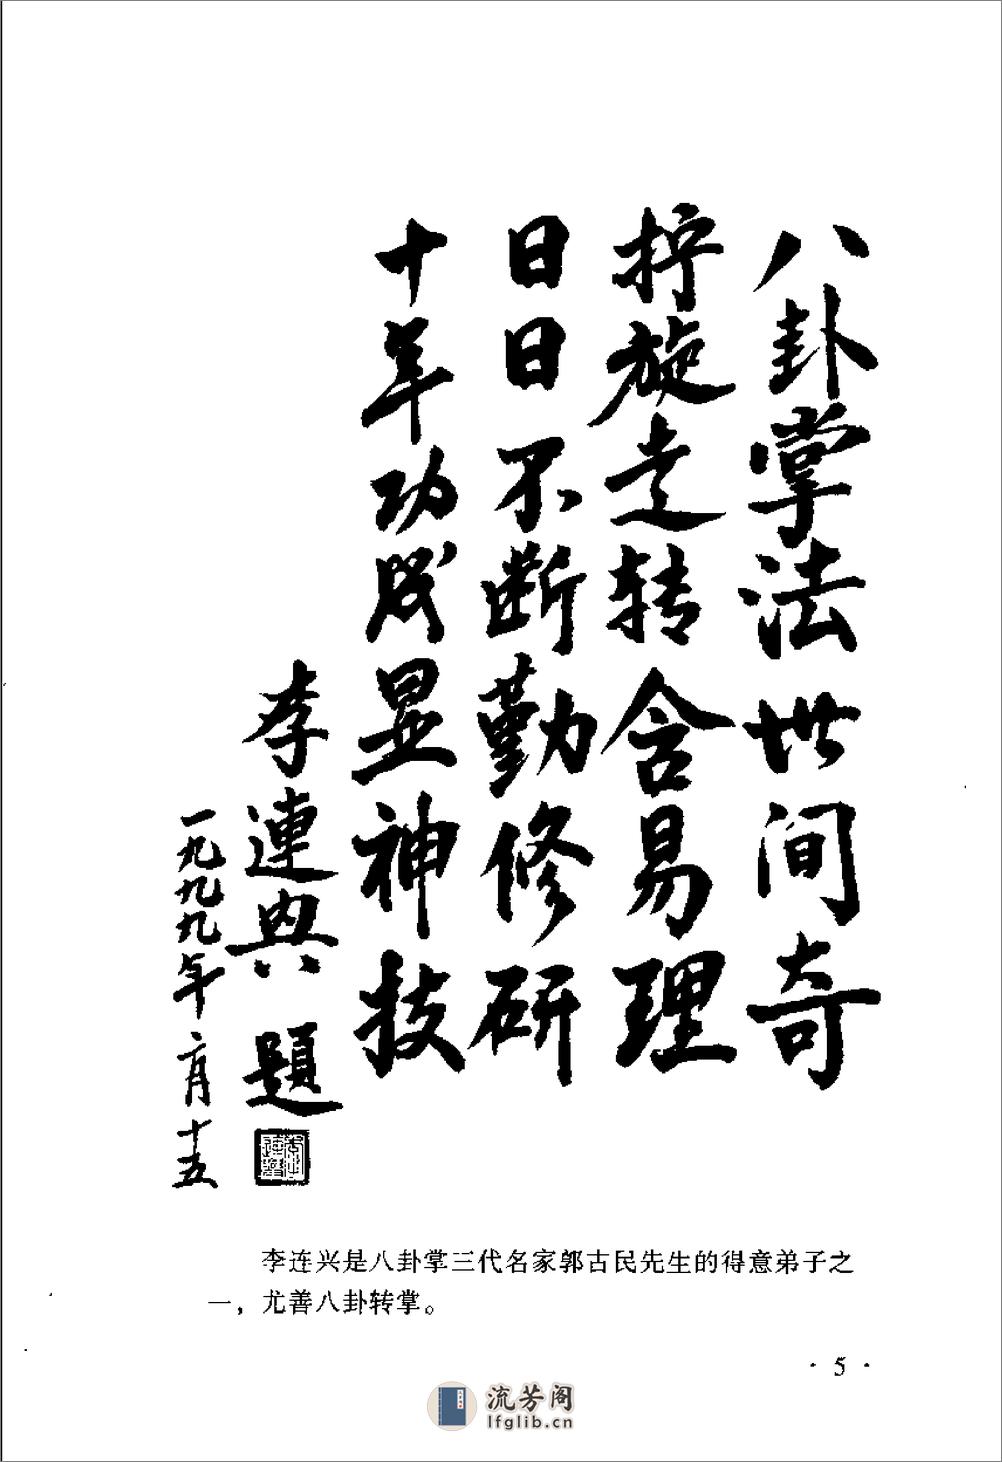 八卦掌法世间奇
拧旋走转含易理
日日不断勤修研
十年功成显神技
李連興 題
一九九九年二月十五
李连兴是八卦掌三代名家郭古民先生的得意弟子之
一，尤善八卦转掌。
· 5 ·
流芳阁
lfglib.cn